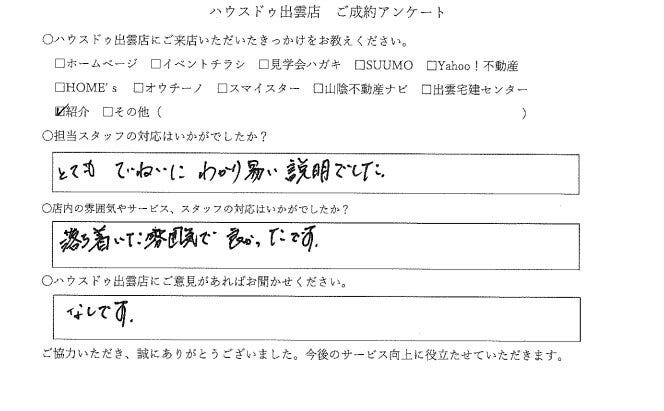 ハウスドゥ出雲店　ご成約アンケート
○ハウスドゥ出雲店にご来店いただいたきっかけをお教えください。
□ホームページ　□イベントチラシ　□見学会ハガキ　□SUUMO　□Yahoo！不動産
□HOME's　□オウチーノ　□スマイスター　□山陰不動産ナビ　□出雲宅建センター
☑紹介　□その他（　　　　　　　　　　　　　　　　　　　　　　　　）
○担当スタッフの対応はいかがでしたか？
とても ていねいに わかり易い 説明でした。
○店内の雰囲気やサービス、スタッフの対応はいかがでしたか？
落ち着いた雰囲気で 良かったです。
○ハウスドゥ出雲店にご意見があればお聞かせください。
なしです。
ご協力いただき、誠にありがとうございました。今後のサービス向上に役立たせていただきます。